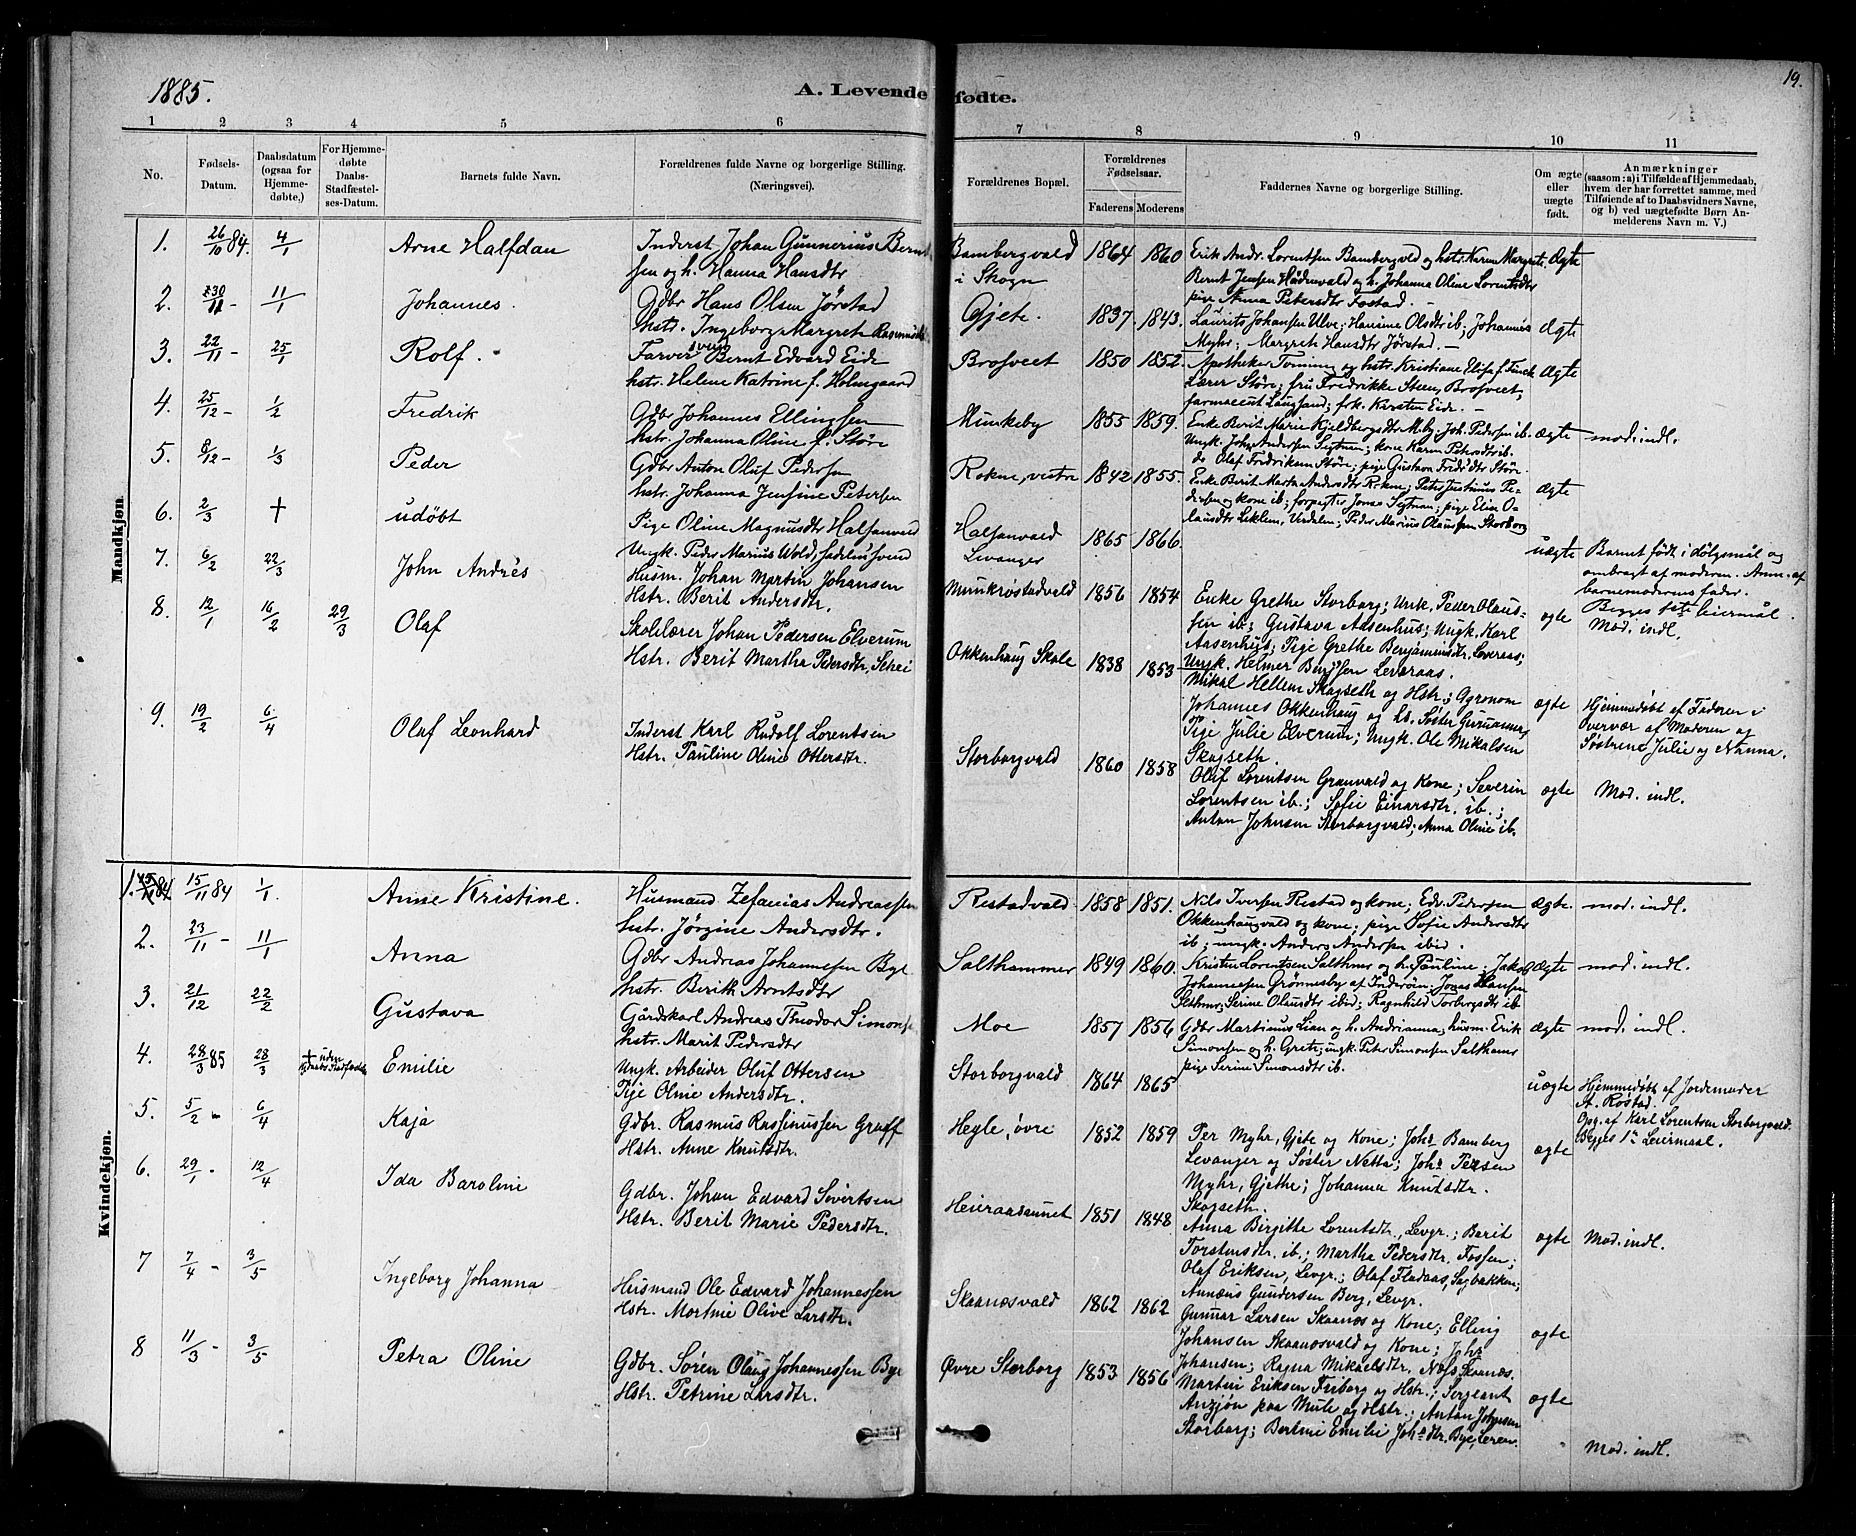 1885.
A. Levende fødte.
19.
1 2 3 4 5 6 7 8 9 10 11
No.
Fødsels-Datum.
Daabsdatum (ogsaa for Hjemme-døbte,)
For Hjemme-døbte Daabs-Stadfæstel-ses-Datum.
Barnets fulde Navn.
Forældrenes fulde Navne og borgerlige Stilling. (Næringsvei).
Forældrenes Bopæl.
Forældrenes Fødselsaar.
Faderens Moderens
Faddernes Navne og borgerlige Stilling.
Om ægte eller uægte født.
Anmærkninger
(saasom: a) i Tilfælde af Hjemmedaab,
hvem der har forrettet samme, med
Tilføiende af to Daabsvidners Navne,
og b) ved uægtefødte Børn An-
melderens Navn m. V.)
Mandkjøn
1. 26/10 84. 4/1 Arne Halfdan
Inderst Johan Gunnerius Bernt
sen og h. Hanna Hansdtr
Bambergvald
i Skogn
1864 1860
Erik Andr. Lorentsen Bambergvld og hstr. Karen Margrete.
Bernt Jensen Hådenvald og h. Johanna Oline Lorentsdtr
pige Anna Petersdtr Fostad. -
Ægte
2. 30/11 - 11/1 Johannes.
Gdbr Hans Olsen Jørstad
hstr. Ingeborg Margreta Rasmusdt
Gjete.
1837 1843.
Laurits Johansen Ulve; Hansine Olsdtr ib; Johannes
Myhr; Margrete Hansdtr Jørstad. -
Ægte
3. 22/11 - 25/1 Rolf.
Farver svend Bernt Edvard Eide
hstr. Helene Katrine f. Holmgaard
Brosveet
1850 1852.
Apotheker Tonning og hstr. Kristiane Elise f. Finck
Lærer Støre; fru Fredrikke Steen, Brosveet,
farmaceut Laugsand; frk. Kirsten Eide. -
Ægte
4. 25/12 - 1/2 Fredrik
Gdbr Johannes Ellingsen
hstr. Johanna Oline f. Støre
Munkeby
1855 1859.
Enke Berit Marie Kjeldbergsdtr Mby; Joh. Pedersen ib.
Ungk. Johs Andersen Segtnan; kone Karen Petersdtr ib.
do Olaf Fredriksen Støre; pige Gustava Fredrdtr Støre
ægte mod. indl.
5. 8/12 - 1/3 Peder
Gdbr Anton Oluf Pedersen
hstr. Johanna Jensine Petersen
Rokne, vestre
1842 1855.
Enke Berit Marta Andersdtr Rokne; Peter Justinus Pe-
dersen og kone ib; forpagter Jonas Segtnan; pige Elen O-
lausdtr Leklem, Verdalen; Peder Marius Olaussen Storborg
ægte
6. 2/3 + udøbt
Pige Oline Magnusdtr Halsanvald
Ungk. Peder Marius Wold, sadelm.svend
Halsanvald
Levanger
1865 1866.
uægte
Barnet født i dølgsmål og
ombragt af moderen. Anm. af
barnemoderens fader.
Begges 1ste leiermål.
7. 6/2 22/3 John Andrés
Husm. Johan Martin Johansen
Hstr. Berit Andersdtr.
Munkrøstadvald
1856 1854
Enke Grethe Storborg; Unk. Peder Olaus-
sen ib; Gustava Aasenhus; Ungk. Karl
Aasenhus; Pige Grethe Benjaminsdtr. Leveraas;
Ungk. Helmer Benjsen Leveraas.
ægte Mod. indl.
8. 12/1 16/2 29/3 Olaf
Skolelærer Johan Pedersen Elverum
Hstr. Berit Martha Pedersdtr. Schei
Okkenhaug Skole
1838 1853
Mikal Hellem Skogseth og Hstr; Agronom
Johannes Okkenhaug og hs. Søster Gurianna;
Pige Julie Elverum; Ungk. Ole Mikalsen
Skogseth.
ægte
Hjemmedøbt af Faderen i
Overvær af Moderen og
Søstrene Julie og Nanna.
9. 19/2 6/4 Olaf Leonhard
Inderst Karl Rudolf Lorentsen
Hstr. Pauline Oline Ottersdtr.
Storborgvald
1860 1858
Oluf Lorentsen Granvald og Kone; Severin
Lorentsen ib.; Sofie Einarsdtr. ib.;
Anton Johnsen Storborgvald; Anna Oline ib.
ægte Mod. indl.
Kvindekjøn.
1. 15/11 84 1/1 Anne Kristine.
Husmand Zefanias Andreassen
hstr. Jørgine Andersdtr.
Restadvald
1858 1851.
Nils Iversen Restad og kone; Edv. Pedersen
Okkenhaugvald og kone; pige Sofie Andersdtr
ib; ungk. Anders Andersen ibid.
ægte. mod. indl.
2. 23/11 - 11/1 Anna
Gdbr Andreas Johannesen Bye
hstr. Berith Arntsdtr
Salthammer
1849 1860.
Kristen Lorentsen Salthmr og h. Pauline; Jakob
Johannesen Grønnesby af Inderøen; Jonas Hansen
Slthmr; Serine Olausdtr ibid; Ragnhild Torbergsdtr ib.
ægte mod. indl.
3. 21/12 22/2 Gustava
Gårdskarl Andreas Theodor Simons
hstr. Marit Pedersdtr
Moe
1857 1856
Gdbr Martinus Lian og h. Andrianna; husm. Erik
Simonsen og h. Grete; ungk. Peter Simonsen Salthamr
pige Serine Simonsdtr ib.
ægte mod. indl.
4. 28/3 85 28/3 + uden Daabs Stadfæstelse Emilie
Ungk. Arbeider Oluf Ottersen
Pige Oline Andersdtr.
Storborgvald
1864 1865
uægte
Hjemmedøbt af Jordemoder
A. Røstad.
Opg. af Karl Lorentsen Storborgvald.
Begges 1ste Leiermaal.
5. 5/2 - 6/4 Kaja
Gdbr. Rasmus Rassinussen Graff
Hstr. Anne Knutsdtr.
Hegle, øvre
1852 1859
Per Myhr, Gjete og Kone; Johs Bamberg
Levanger og Søster Netta; Johs Persen
Myhr, Gjethe; Johanna Knutsdtr.
Skogseth.
ægte
6. 29/1 - 12/4 Ida Baroline
Gdbr. Johan Edvard Sivertsen
Hstr. Berit Marie Pedersdtr.
Heieraasunet
1851 1848
Anna Birgitte Lorentsdtr., Levgr.; Berit
Torstensdtr. ib.; Martha Pedersdtr. Fossen;
Olaf Eriksen, Levgr.; Olaf Fladaas, Sagbakken;
Annæus Gundersen Berg, Levgr.
ægte Mod. indl.
7 7/4 - 3/5 Ingeborg Johanna
Husmand Ole Edvard Johannessen
Hstr. Mortine Olive Larsdtr.
Skaanesvald
1862 1862
Gunnar Larsen Skaanes og Kone; Elling
Johansen Skaanesvald og Kone; Johs
Johansen; Ragna Mikaelsdtr. Næss Skaanes.
ægte
8 11/3 - 3/5 Petra Oline
Gdbr. Sören Olaus Johannessen Bye
Hstr. Petrine Larsdtr.
Øvre Storborg
1853 1856
Martin Eriksen Friborg og Hstr.; Sergeant
Anzjön paa Mule og Hstr.; Anton Johnsen
Storborg; Bertine Emilie Johsdtr. Bye, Leren.
ægte
Mod. indl.